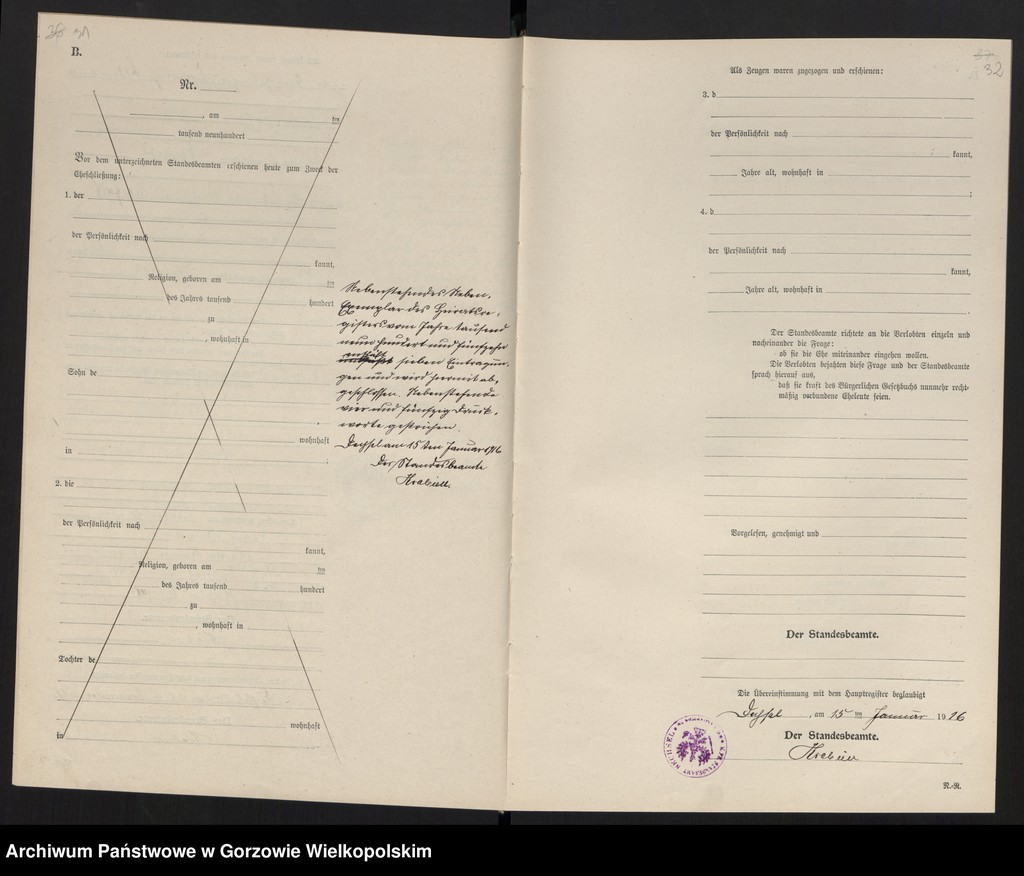 B.
Nr.
, am ten
tausend neunhundert
Vor dem unterzeichneten Standesbeamten erschienen heute zum Zweck der
Eheschließung:
1. der
der Persönlichkeit nach
kannt,
Religion, geboren am ten
des Jahres tausend hundert
zu
, wohnhaft in
Sohn de
wohnhaft
in
2. die
der Persönlichkeit nach
kannt,
Religion, geboren am ten
des Jahres tausend hundert
zu
, wohnhaft in
Tochter de
wohnhaft
in
Nebenstehendes Neben-
Exemplar des Heiratsre-
gisters vom Jahre tausend
neun hundert und fünfzehn
enthält
sieben Eintragun-
gen und wird hiermit ab-
geschlossen. Nebenstehende
vier und fünfzig Druck-
worte gestrichen.
Dechsel am 15ten Januar 1916
Der Standesbeamte
32
Als Zeugen waren zugezogen und erschienen:
3. d
der Persönlichkeit nach
kannt,
Jahre alt, wohnhaft in
;
4. d
der Persönlichkeit nach
kannt,
Jahre alt, wohnhaft in
Der Standesbeamte richtete an die Verlobten einzeln und
nacheinander die Frage:
ob sie die Ehe miteinander eingehen wollen.
Die Verlobten bejahten diese Frage und der Standesbeamte
sprach hierauf aus,
daß sie kraft des Bürgerlichen Gesetzbuchs nunmehr recht-
mäßig verbundene Eheleute seien.
Vorgelesen, genehmigt und
Der Standesbeamte.
Die Übereinstimmung mit dem Hauptregister beglaubigt
Dechsel, am 15 ten Januar 1916
Der Standesbeamte.
N.-R.
Archiwum Państwowe w Gorzowie Wielkopolskim